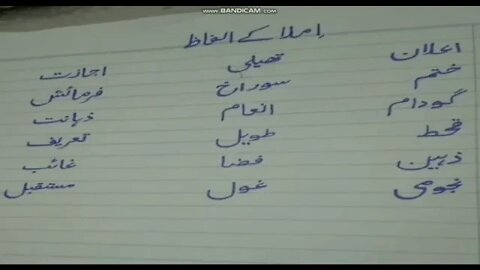 www.BANDICAM.com
املا کے الفاظ
اعلان تھیلی اجازت
ختم سوراخ فرمائش
گودام انعام ذہانت
قحط طویل تعریف
ذہین فضا غائب
نجومی غول مستقبل